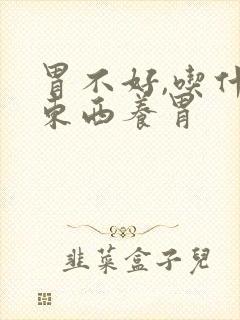 胃不好,喫什
东西養胃
韭菜盒子兒